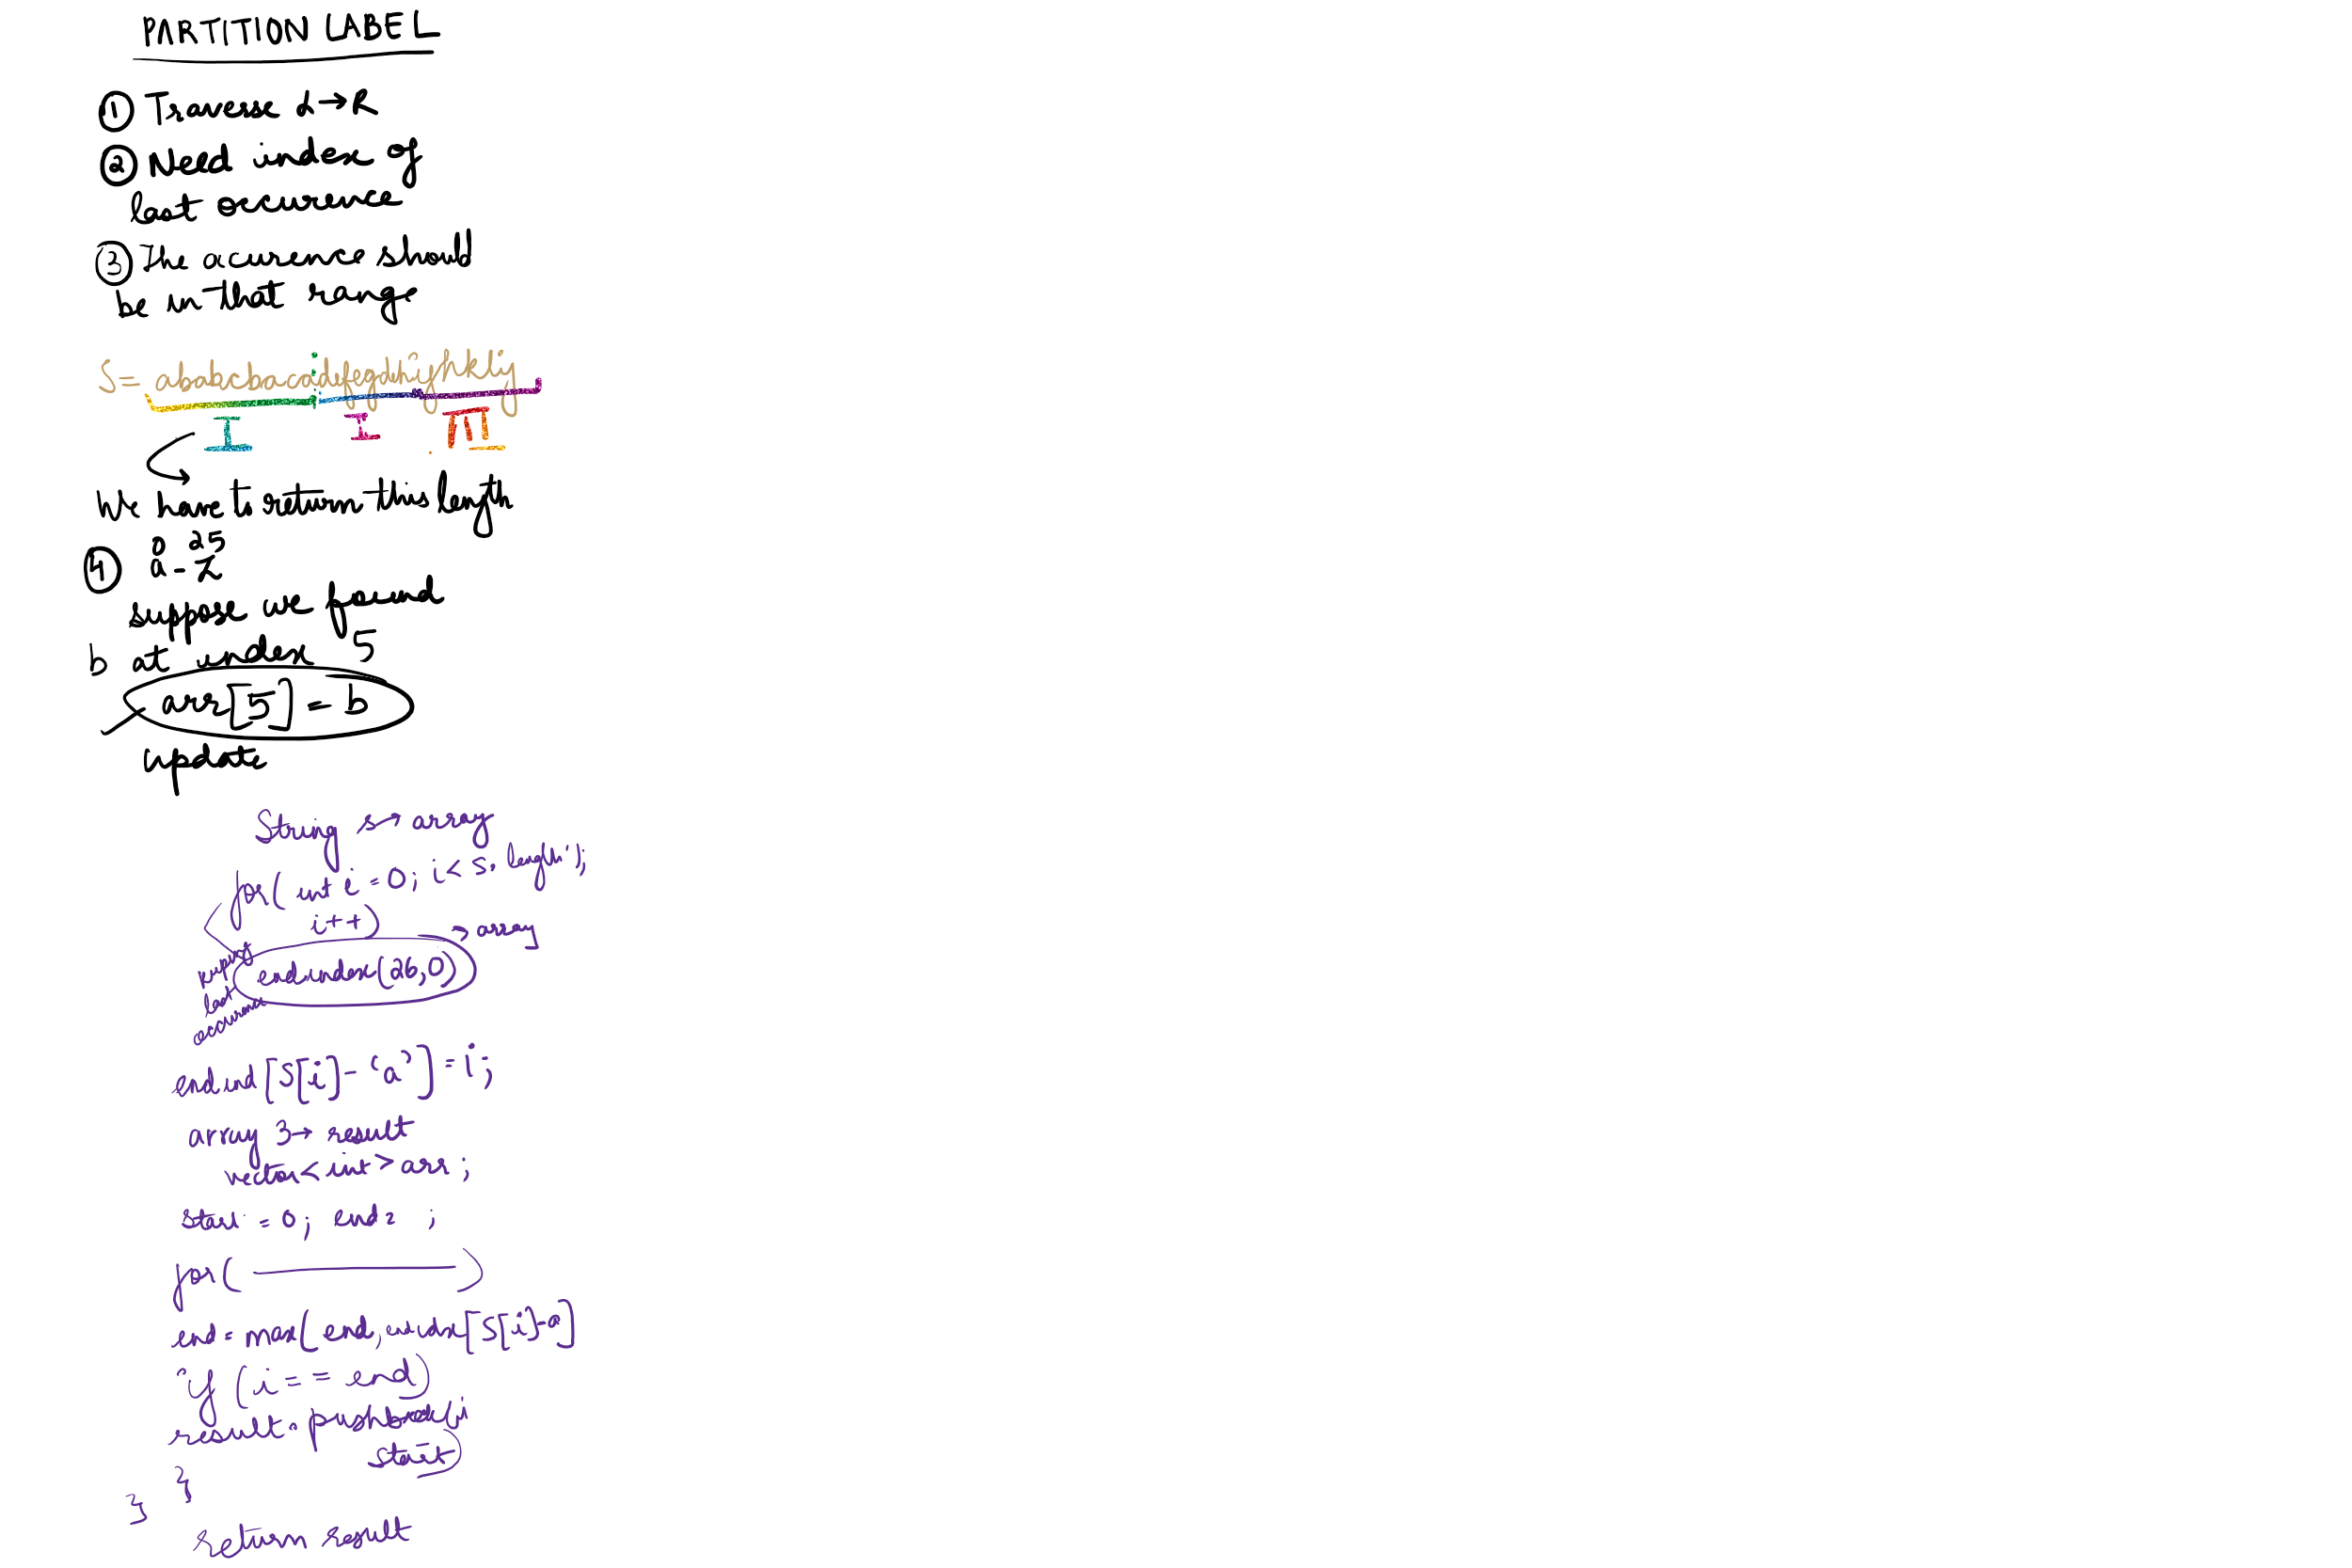 PARTITION LABEL
① Traverse L→R
② Need index of
last occurence
③ The occurence should
be in that range
S= ababcbacadefegdehijhklij
I I III
We have to return this length
0 25
④ a - z
suppose we found
b at index 5
arr[5] = b
update
String s → array
for( int i = 0; i < s. length');
i++)
→ array
endindex(26,0)
last
occurence
endind[S[i]- 'a'] = i;
array 3→ result
vector<int> arr ;
start = 0; end = ;
for( ———— )
end = max( end, endidx[S[i]-a]
if (i == end)
result. pushback(i
start)
}
}
return result